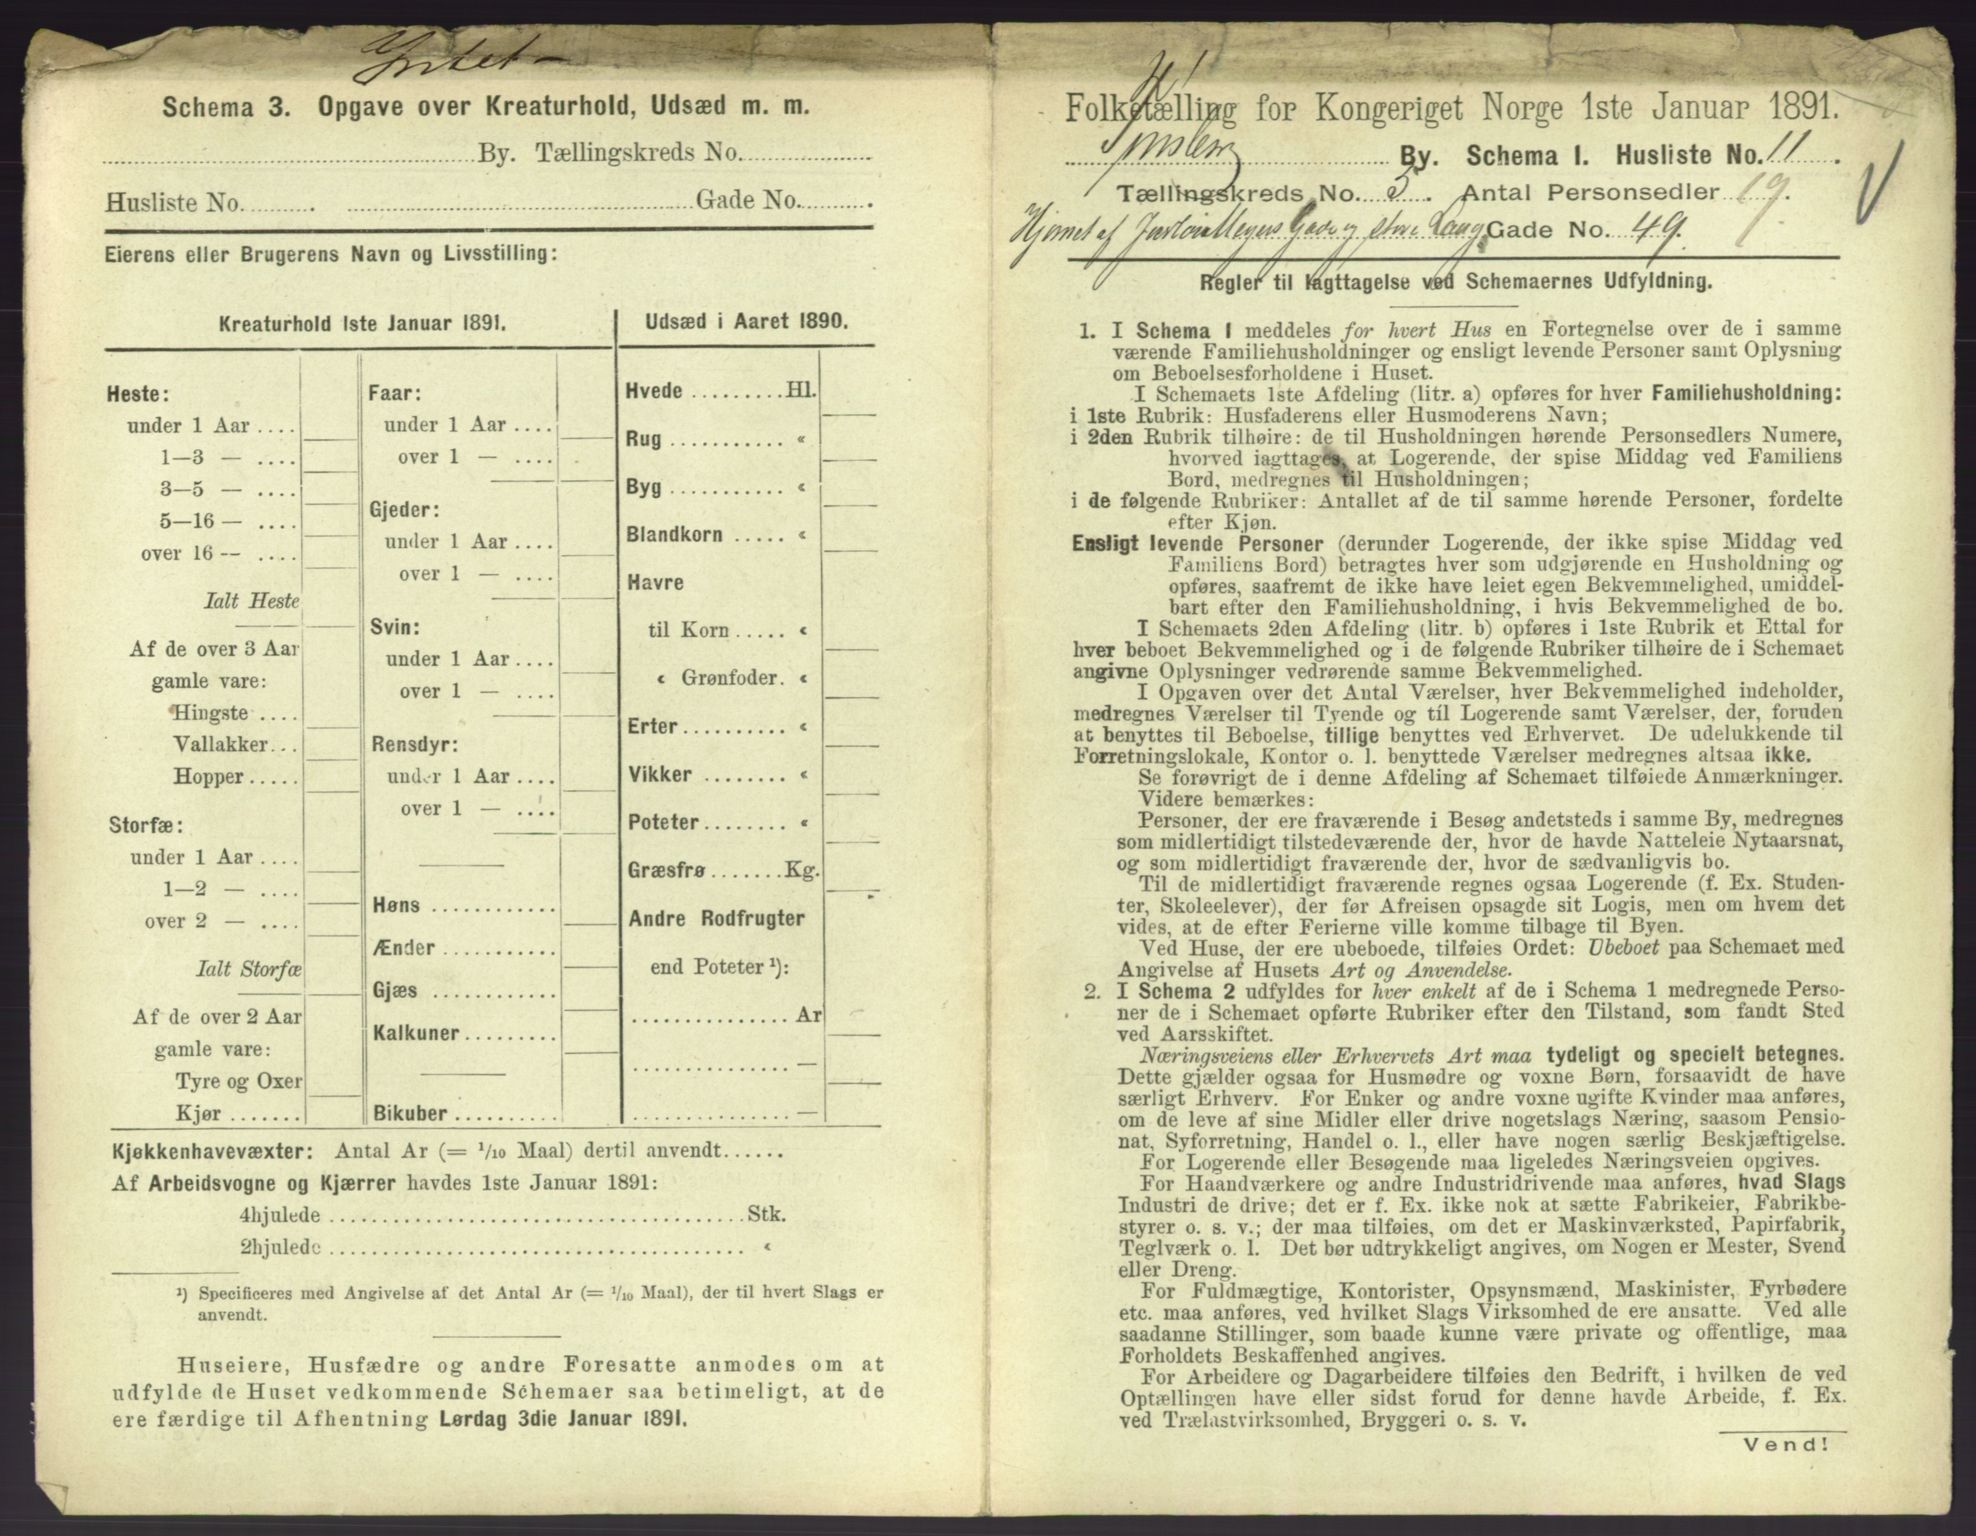 Intet
Schema 3. Opgave over Kreaturhold, Udsæd m. m.
By. Tællingskreds No.
Husliste No. Gade No.
Eierens eller Brugerens Navn og Livsstilling:
Kreaturhold 1ste Januar 1891.
Heste:
under 1 Aar
1—3 —
3—5 —
5—16 —
over 16 —
Ialt Heste
Af de over 3 Aar
gamle vare:
Hingste
Vallakker
Hopper
Storfæ:
under 1 Aar
1—2 —
over 2 —
Ialt Storfæ
Af de over 2 Aar
gamle vare:
Tyre og Oxer
Kjør
Faar:
under 1 Aar
over 1 —
Gjeder:
under 1 Aar
over 1 —
Svin:
under 1 Aar
over 1 —
Rensdyr:
under 1 Aar
over 1 —
Høns
Ænder
Gjæs
Kalkuner
Bikuber
Udsæd i Aaret 1890.
Hvede Hl.
Rug «
Byg «
Blandkorn «
Havre
til Korn «
« Grønfoder. «
Erter «
Vikker «
Poteter «
Græsfrø Kg.
Andre Rodfrugter
end Poteter ¹):
Ar
—
—
Kjøkkenhavevæxter: Antal Ar (= 1/10 Maal) dertil anvendt
Af Arbeidsvogne og Kjærrer havdes 1ste Januar 1891:
4hjulede Stk.
2hjulede «
¹) Specificeres med Angivelse af det Antal Ar (= 1/10 Maal), der til hvert Slags er
anvendt.
Huseiere, Husfædre og andre Foresatte anmodes om at
udfylde de Huset vedkommende Schemaer saa betimeligt, at de
ere færdige til Afhentning Lørdag 3die Januar 1891.
Folketælling for Kongeriget Norge 1ste Januar 1891.
By. Schema 1. Husliste No. 11.
Tællingskreds No. 3. Antal Personsedler 19.
Hjørnet af Meyers Gade og store Lang Gade No. 49.
Regler til Iagttagelse ved Schemaernes Udfyldning.
1. I Schema 1 meddeles for hvert Hus en Fortegnelse over de i samme
værende Familiehusholdninger og ensligt levende Personer samt Oplysning
om Beboelsesforholdene i Huset.
I Schemaets 1ste Afdeling (litr. a) opføres for hver Familiehusholdning:
i 1ste Rubrik: Husfaderens eller Husmoderens Navn;
i 2den Rubrik tilhøire: de til Husholdningen hørende Personsedlers Numere,
hvorved iagttages, at Logerende, der spise Middag ved Familiens
Bord, medregnes til Husholdningen;
i de følgende Rubriker: Antallet af de til samme hørende Personer, fordelte
efter Kjøn.
Ensligt levende Personer (derunder Logerende, der ikke spise Middag ved
Familiens Bord) betragtes hver som udgjørende en Husholdning og
opføres, saafremt de ikke have leiet egen Bekvemmelighed, umiddel-
bart efter den Familiehusholdning, i hvis Bekvemmelighed de bo.
I Schemaets 2den Afdeling (litr. b) opføres i 1ste Rubrik et Ettal for
hver beboet Bekvemmelighed og i de følgende Rubriker tilhøire de i Schemaet
angivne Oplysninger vedrørende samme Bekvemmelighed.
I Opgaven over det Antal Værelser, hver Bekvemmelighed indeholder,
medregnes Værelser til Tyende og til Logerende samt Værelser, der, foruden
at benyttes til Beboelse, tillige benyttes ved Erhvervet. De udelukkende til
Forretningslokale, Kontor o. l. benyttede Værelser medregnes altsaa ikke.
Se forøvrigt de i denne Afdeling af Schemaet tilføiede Anmærkninger.
Videre bemærkes:
Personer, der ere fraværende i Besøg andetsteds i samme By, medregnes
som midlertidigt tilstedeværende der, hvor de havde Natteleie Nytaarsnat,
og som midlertidigt fraværende der, hvor de sædvanligvis bo.
Til de midlertidigt fraværende regnes ogsaa Logerende (f. Ex. Studen-
ter, Skoleelever), der før Afreisen opsagde sit Logis, men om hvem det
vides, at de efter Ferierne ville komme tilbage til Byen.
Ved Huse, der ere ubeboede, tilføies Ordet: Ubeboet paa Schemaet med
Angivelse af Husets Art og Anvendelse.
2. I Schema 2 udfyldes for hver enkelt af de i Schema 1 medregnede Perso-
ner de i Schemaet opførte Rubriker efter den Tilstand, som fandt Sted
ved Aarsskiftet.
Næringsveiens eller Erhvervets Art maa tydeligt og specielt betegnes.
Dette gjælder ogsaa for Husmødre og voxne Børn, forsaavidt de have
særligt Erhverv. For Enker og andre voxne ugifte Kvinder maa anføres,
om de leve af sine Midler eller drive nogetslags Næring, saasom Pensio-
nat, Syforretning, Handel o. l., eller have nogen særlig Beskjæftigelse.
For Logerende eller Besøgende maa ligeledes Næringsveien opgives.
For Haandværkere og andre Industridrivende maa anføres, hvad Slags
Industri de drive; det er f. Ex. ikke nok at sætte Fabrikeier, Fabrikbe-
styrer o. s. v.; der maa tilføies, om det er Maskinværksted, Papirfabrik,
Teglværk o. l. Det bør udtrykkeligt angives, om Nogen er Mester, Svend
eller Dreng.
For Fuldmægtige, Kontorister, Opsynsmænd, Maskinister, Fyrbødere
etc. maa anføres, ved hvilket Slags Virksomhed de ere ansatte. Ved alle
saadanne Stillinger, som baade kunne være private og offentlige, maa
Forholdets Beskaffenhed angives.
For Arbeidere og Dagarbeidere tilføies den Bedrift, i hvilken de ved
Optællingen have eller sidst forud for denne havde Arbeide, f. Ex.
ved Trælastvirksomhed, Bryggeri o. s. v.
Vend!